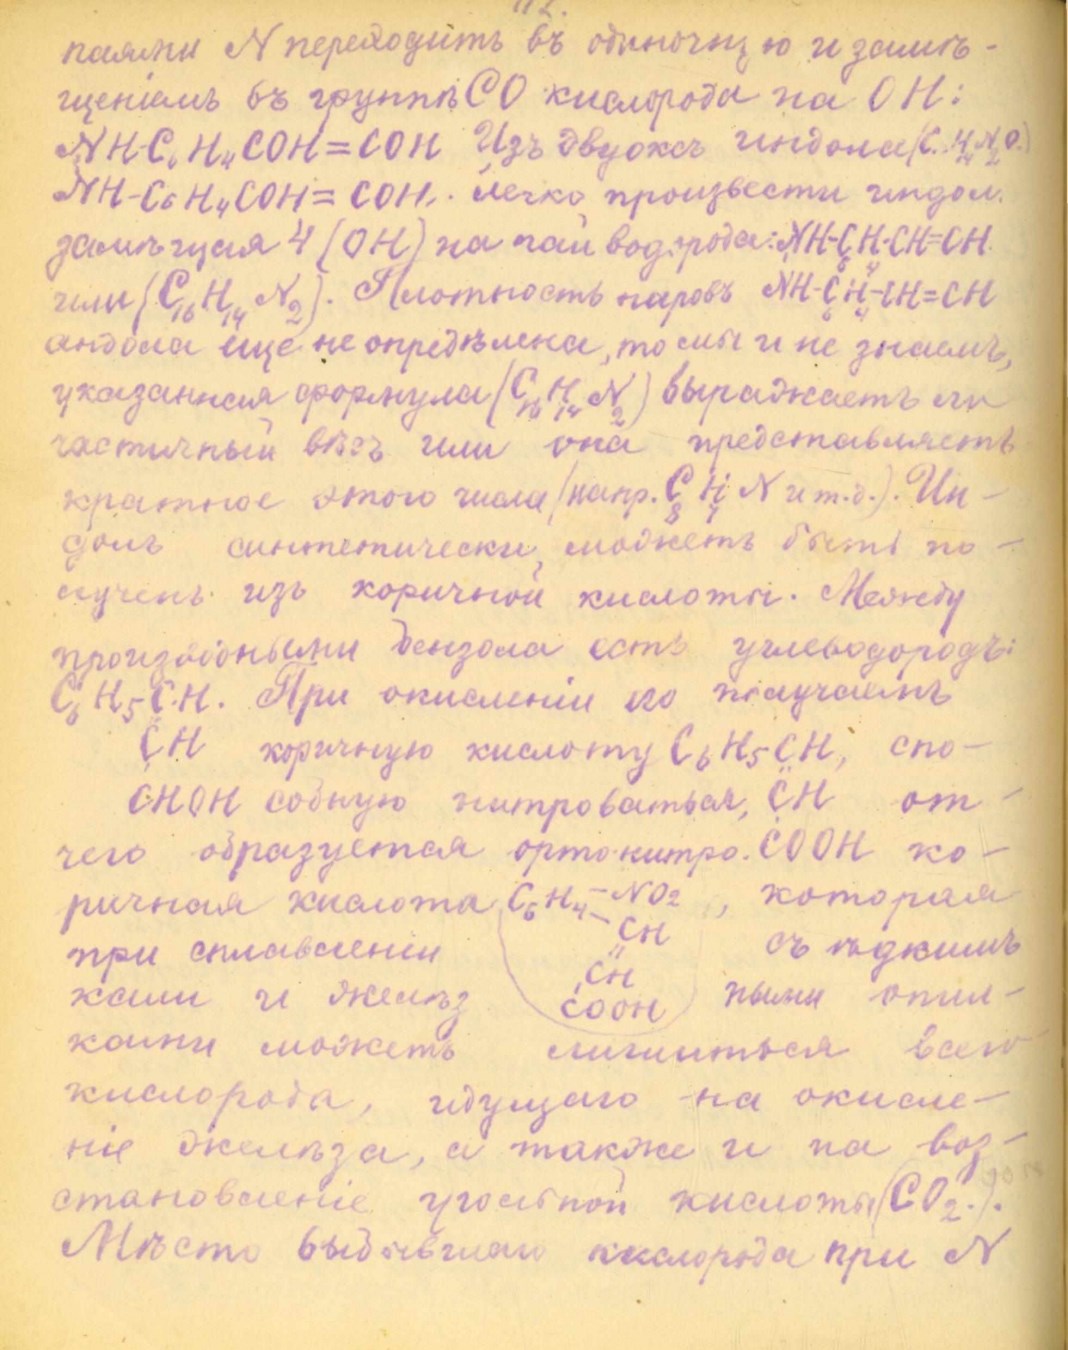 112.
паями N переходитъ въ одиночную и замѣ-
щеніемъ въ группѣ CO кислорода на OH:
NH-C6H4COH=COH Изъ двуокс индола (C16H14N2O.)
NH-C6H4COH=COH. легко произвести индол.
замѣщая 4 (OH) на паи водорода: NH-C6H4-CH=CH
или (C16H14N2). Плотность паровъ NH-C6H4-CH=CH
индола еще не опредѣлена, то мы и не знаемъ,
указанная формула (C16H14N2) выражаетъ ли
частичный вѣсъ или она представляетъ
кратное этого числа (напр. C8H7N и т.д.). Ин-
долъ синтетически, можетъ быть по-
лученъ изъ коричной кислоты. Между
производными бензола есть углеводородъ:
C6H5CH. При окисленіи его получаемъ
CH коричную кислоту C6H5CH, спо-
CHOH собную нитроваться, CH от-
чего образуется орто-нитро. COOH ко-
ричная кислота C6H4-NO2, которая
при сплавленіи CH съ ѣдкимъ
CH
кали и желѣз COOH ными опил-
ками можетъ лишиться всего
кислорода, идущаго на окисле-
ніе желѣза, а также и на воз-
становленіе угольной кислоты (CO2.).
Мѣсто выбывшаго кислорода при N